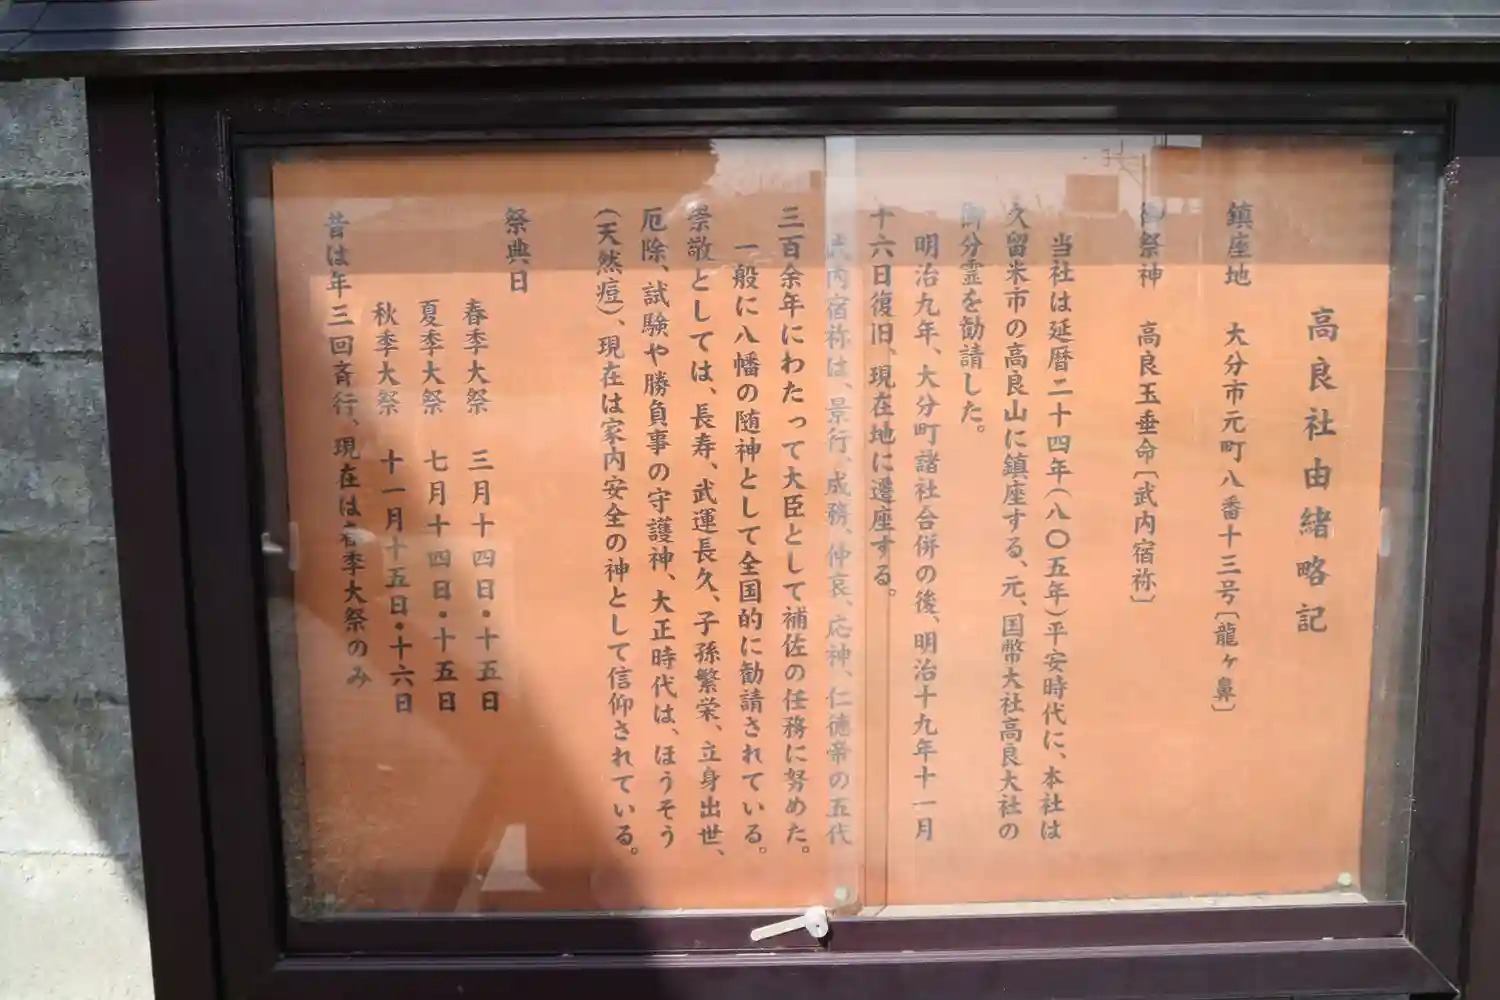 高良社由緒略記
鎮座地　大分市元町八番十三号〔龍ヶ鼻〕
御祭神　高良玉垂命〔武内宿祢〕
当社は延暦二十四年（八〇五年）平安時代に、本社は
久留米市の高良山に鎮座する、元、国幣大社高良大社の
御分霊を勧請した。
明治九年、大分町諸社合併の後、明治十九年十一月
十六日復旧、現在地に遷座する。
武内宿祢は、景行、成務、仲哀、応神、仁徳帝の五代
三百余年にわたって大臣として補佐の任務に努めた。
一般に八幡の随神として全国的に勧請されている。
崇敬としては、長寿、武運長久、子孫繁栄、立身出世、
厄除、試験や勝負事の守護神、大正時代は、ほうそう
（天然痘）、現在は家内安全の神として信仰されている。
祭典日
春季大祭　三月十四日・十五日
夏季大祭　七月十四日・十五日
秋季大祭　十一月十五日・十六日
昔は年三回斉行、現在は春季大祭のみ